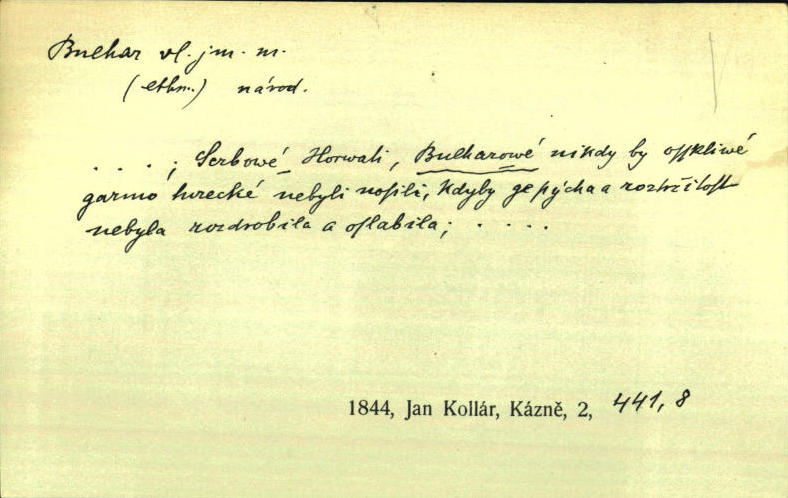 Bulhar vl. jm. m.
(ethn.) národ.
. . . . ; Serbowé Horwati, Bulharowé nikdy by osskliwé
garmo turecké nebyli nosili, kdyby ge pýcha a roztržitost
nebyla rozdrobila a oslabila; . . . .
1844, Jan Kollár, Kázně, 2, 441, 8